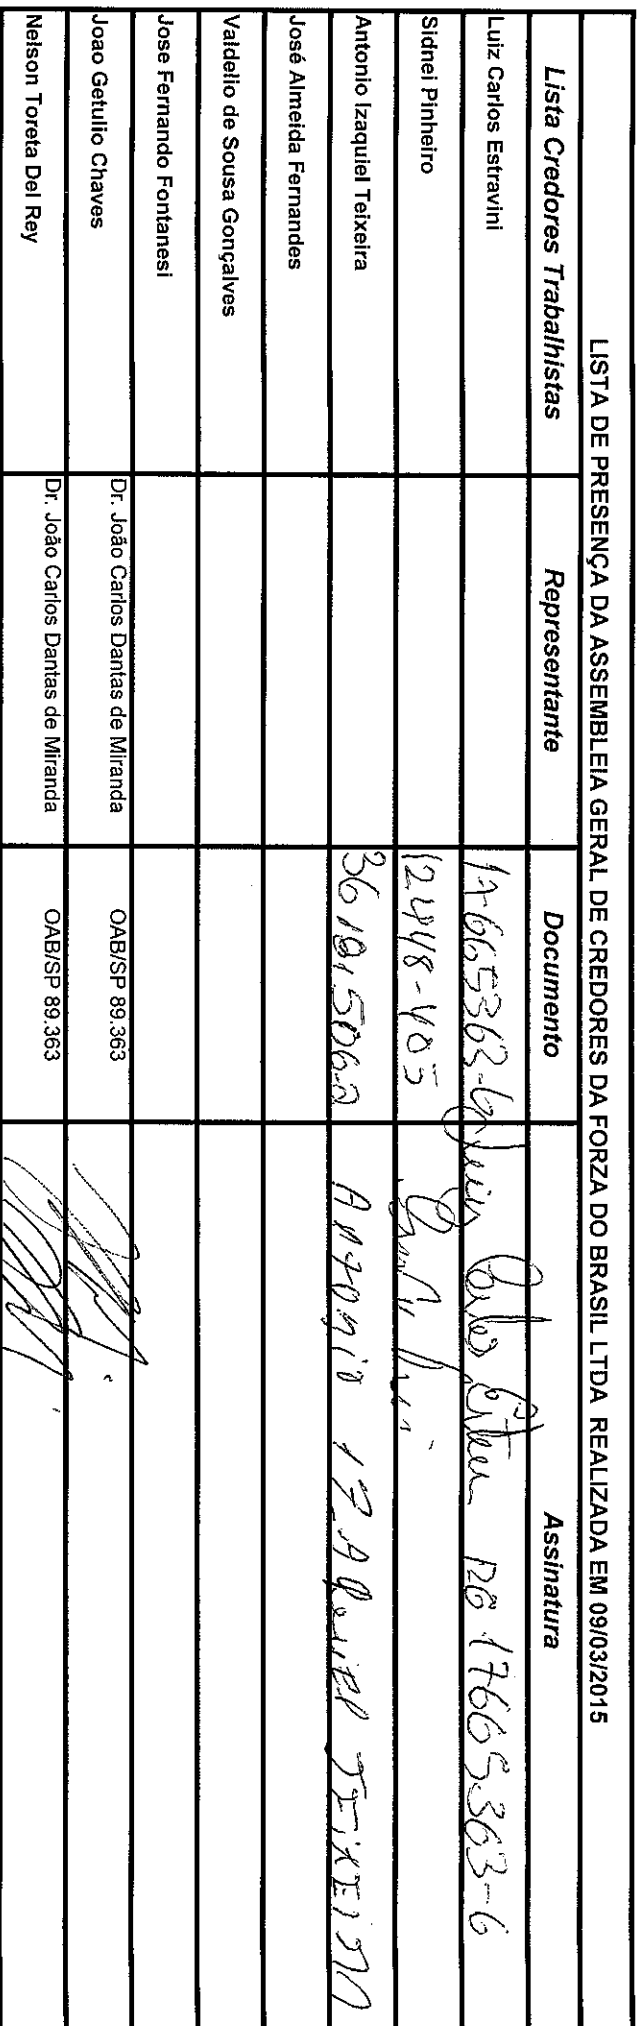 LISTA DE PRESENÇA DA ASSEMBLEIA GERAL DE CREDORES DA FORZA DO BRASIL LTDA REALIZADA EM 09/03/2015
Lista Credores Trabalhistas Representante Documento Assinatura
Luiz Carlos Estravini 17665363-6 Luiz Carlos RG 17665363-6
Sidnei Pinheiro 12448-405
Antonio Izaquiel Teixeira Antonio IZAQuiEl TEiXEiRA
José Almeida Fernandes
Valdelio de Sousa Gonçalves
Jose Fernando Fontanesi
Joao Getulio Chaves Dr. João Carlos Dantas de Miranda OAB/SP 89.363
Nelson Toreta Del Rey Dr. João Carlos Dantas de Miranda OAB/SP 89.363